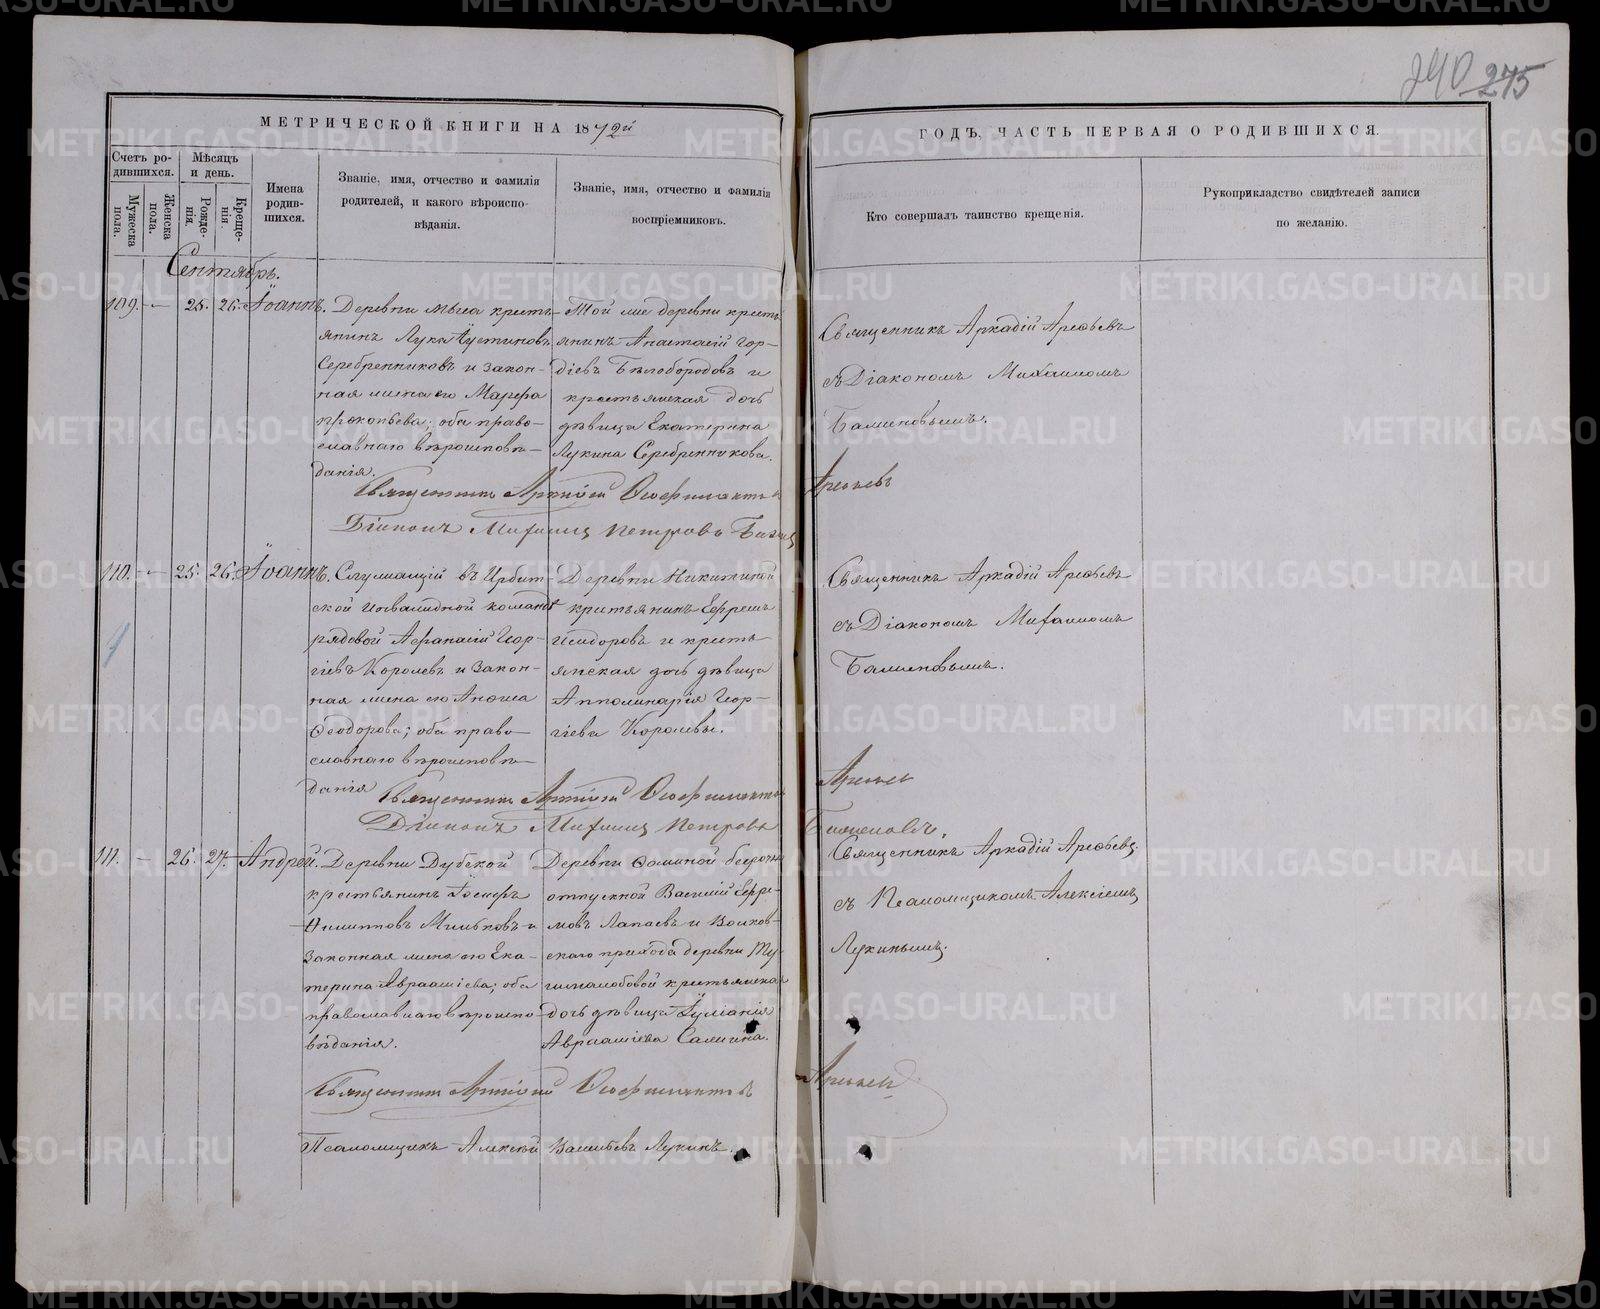 240 275
МЕТРИЧЕСКОЙ КНИГИ НА 1872й
ГОДЪ, ЧАСТЬ ПЕРВАЯ О РОДИВШИХСЯ.
Счетъ ро-
дившихся.
Мужеска
пола.
Женска
пола.
Мѣсяцъ
и день.
Рожде-
нія.
Креще-
нія.
Имена
родив-
шихся.
Званіе, имя, отчество и фамилія
родителей, и какого вѣроиспо-
вѣданія.
Званіе, имя, отчество и фамилія
воспріемниковъ.
Кто совершалъ таинство крещенія.
Рукоприкладство свидѣтелей записи
по желанію.
Сентябрь.
109. — 25. 26. Іоаннъ.
Деревни Мыса кресть-
янинъ Лука Іустиновъ
Серебренниковъ и закон-
ная жена его Марѳа
Прокопьева; оба право-
славнаго вѣроисповѣ-
данія.
Той же деревни кресть-
янинъ Анастасій Гор-
діевъ Бѣлобородовъ и
крестьянская дочь
дѣвица Екатерина
Лукина Серебренникова.
Священникъ Аркадій Арефьевъ
съ Діакономъ Михаиломъ
Бажиновымъ.
Священникъ Аркадій Арефьевъ
Діаконъ Михаилъ Петровъ
110. — 25. 26. Іоаннъ.
Служащій въ Ирбит-
ской инвалидной командѣ
рядовой Афанасій Геор-
гіевъ Королевъ и закон-
ная жена его Анѳиса
Ѳеодорова; оба право-
славнаго вѣроисповѣ-
данія
Деревни Никитиной
крестьянинъ Ефремъ
Исидоровъ и кресть-
янская дочь дѣвица
Апполинарія Геор-
гіева Королевы.
Священникъ Аркадій Арефьевъ
съ Діакономъ Михаиломъ
Бажиновымъ.
Священникъ Аркадій Арефьевъ
Діаконъ Михаилъ Петровъ Бажиновъ.
111. — 26. 27. Андрей.
Деревни Дубской
крестьянинъ Іосифъ
Филипповъ Мильковъ и
законная жена его Ека-
терина Авраамiева; оба
православнаго вѣроиспо-
вѣданія.
Деревни Ѳоминой безсрочно
отпускной Василій Ефре-
мовъ Лапаевъ и Волков-
скаго прихода деревни
крестьянская
дочь дѣвица Іуліанія
Авраамiева Саминa.
Священникъ Аркадій Арефьевъ
съ Псаломщикомъ Алексіемъ
Лукинымъ.
Священникъ Аркадій Арефьевъ
Псаломщикъ Алексѣй Васильевъ Лукинъ.
METRIKI.GASO-URAL.RU